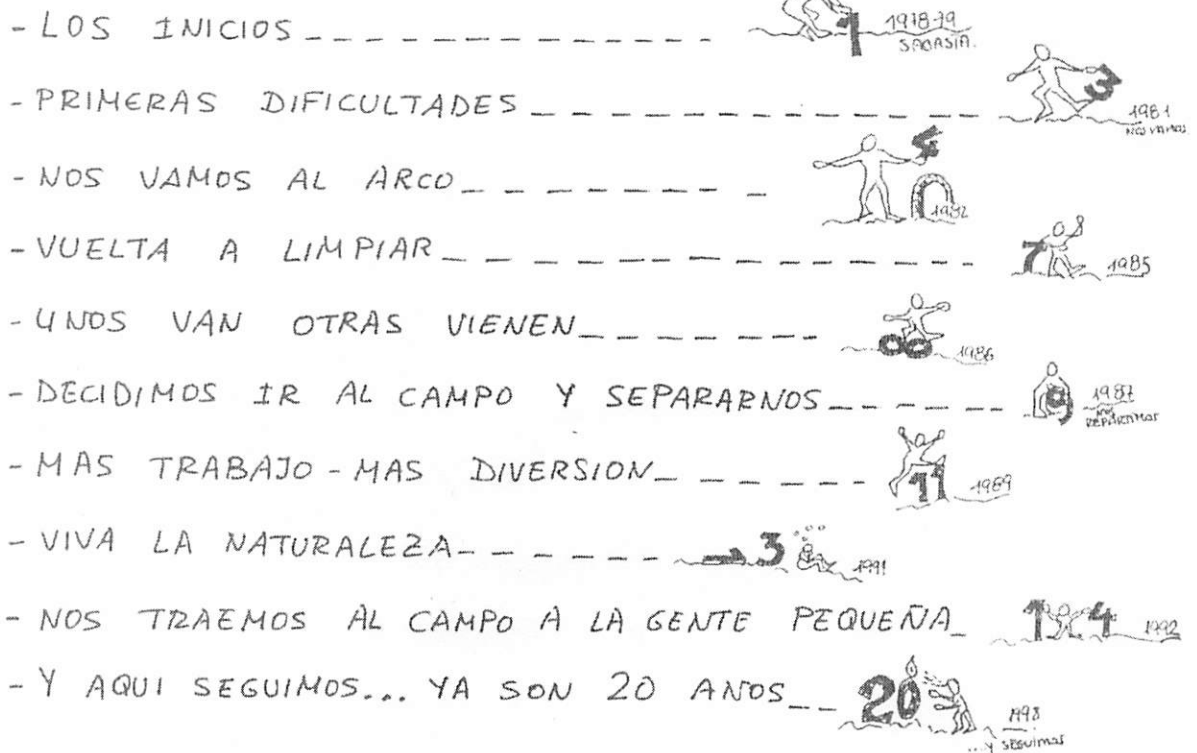 - LOS INICIOS_ _ _ _ _ _ _ _ _ _ _ _ _ _ 1 1978-79
- PRIMERAS DIFICULTADES_ _ _ _ _ _ _ _ _ _ _ _ _ 3 1981
NOS VAMOS
- NOS VAMOS AL ARCO_ _ _ _ _ _ _ _ 4 1982
- VUELTA A LIMPIAR_ _ _ _ _ _ _ _ _ _ _ _ _ _ 7 1985
- UNOS VAN OTRAS VIENEN_ _ _ _ _ _ _ 8 1986
- DECIDIMOS IR AL CAMPO Y SEPARARNOS_ _ _ _ _ 9 1987
NOS
REPARTIMOS
- MAS TRABAJO - MAS DIVERSION_ _ _ _ _ _ 11 1989
- VIVA LA NATURALEZA_ _ _ _ _ _ _ 13 1991
- NOS TRAEMOS AL CAMPO A LA GENTE PEQUEÑA_ 14 1992
- Y AQUI SEGUIMOS... YA SON 20 AÑOS_ _ _ 20 1998
...Y SEGUIMOS